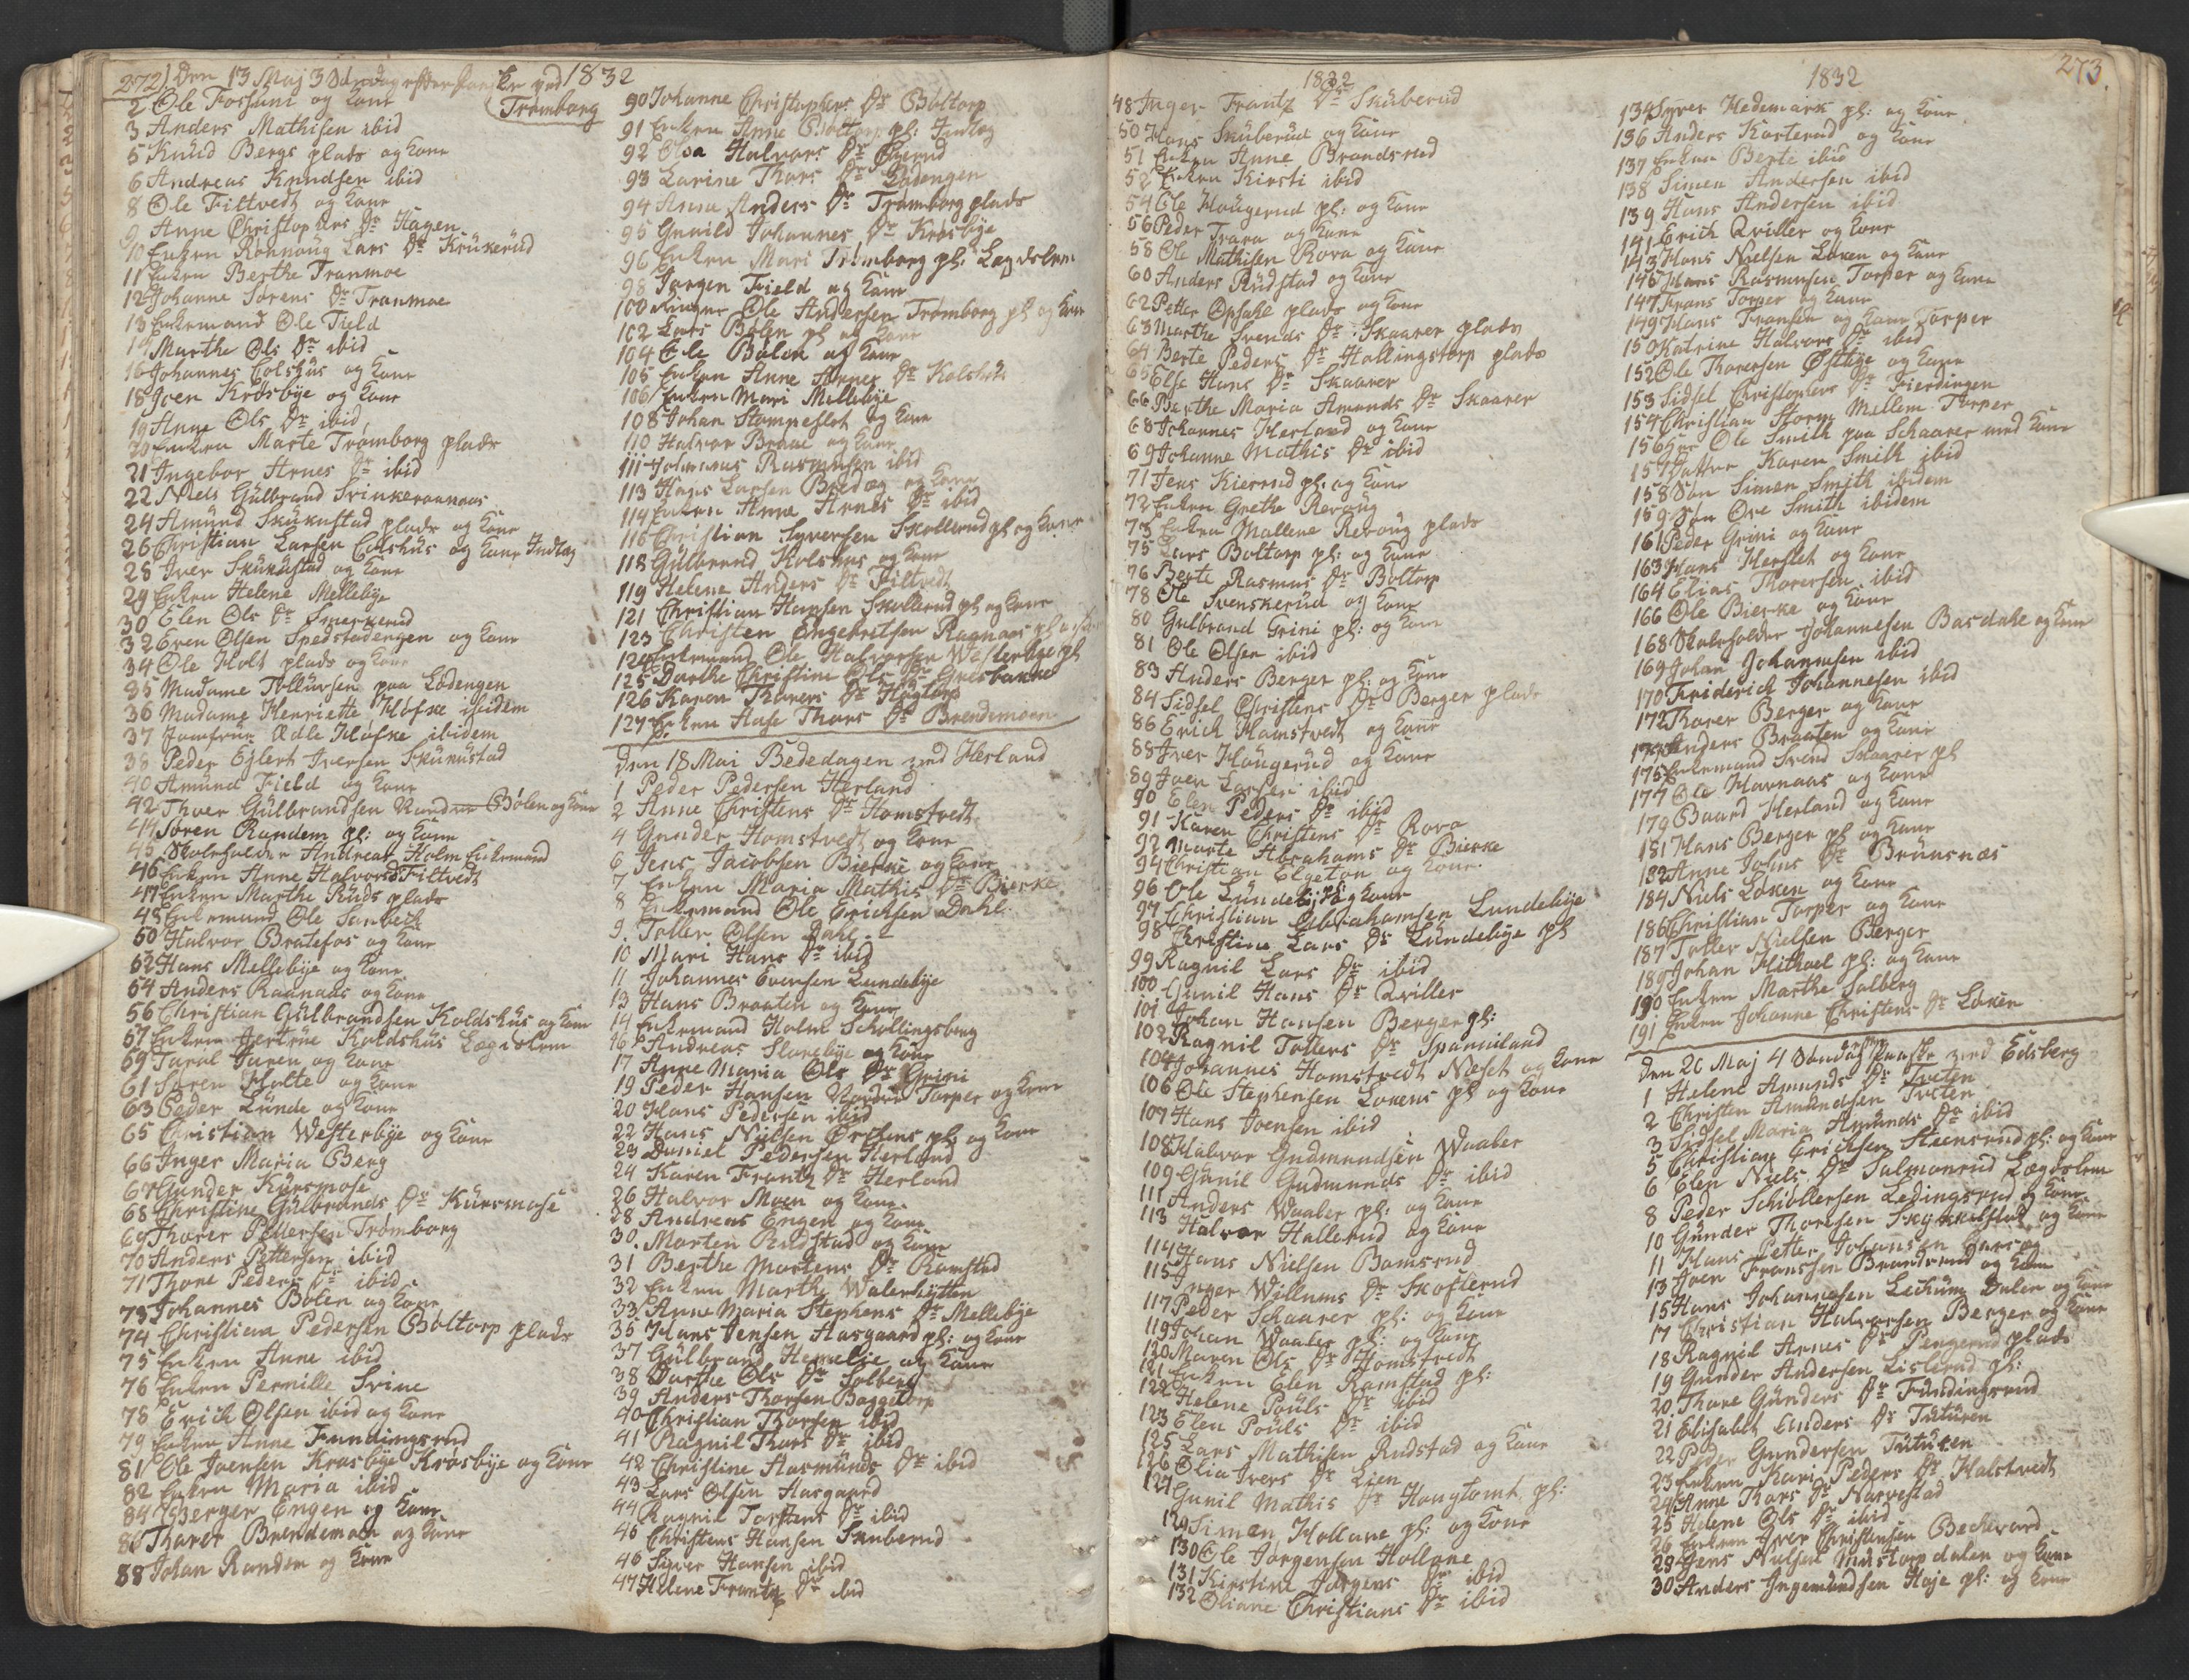 272) Den 13 Maj 3 Søndag efter Paaske ved 1832
Trømborg
2 Ole Fossum og Kone
3 Anders Mathisen ibid
5 Knud Bergs plads og Kone
6 Andreas Knudsen ibid
8 Ole Filtvedt og Kone
9 Anne Christophers Dr Hagen
10 Enken Rønnoug Lars Dr Krukerud
11 Enken Berthe Tranmoe
12 Johanne Sørens Dr Tranmoe
13 Enkemand Ole Field
14 Marthe Ols Dr ibid
16 Johannes Colshus og Kone
18 Joen Krosbye og Kone
19 Anne Ols Dr ibid
20 Enken Marte Trømborg plads
21 Ingebor Arnes Dr ibid
22 Niels Gulbrand
24 Amund Skukustad plads og Kone
26 Christian Larsen Colshus og Kone Indlæg
28 Iver Skukustad og Kone
29 Enken Helene Mellebye
30 Elen Ols Dr Smerkerud
32 Even Olsen Spedstadengen og Kone
34 Ole Holt plads og Kone
35 Madame Tollursen paa Lodengen
36 Madame Henriette Høfke ibidem
37 Jomfrue Ædle Høfke ibidem
38 Peder Ejlert Iversen Skukustad
40 Amund Field og Kone
42 Thver Gulbrandsen Bølen og Kone
44 Søren Randem pl: og Kone
45 Skoleholder Andreas Holm Enkemand
46 Enken Anne Halvors Dr Filtvedt
47 Enken Marthe Ruds plads
48 Enkemand Ole Sanbech
50 Halvor Bratefos og Kone
52 Hans Mellebye og Kone
54 Anders Raanaas og Kone
56 Christian Gulbrandsen Koldshus og Kone
57 Enken Jertrue Koldshus Lægdslem
59 Taral Juren og Kone
61 Søren Holte og Kone
63 Peder Lunde og Kone
65 Christian Westerbye og Kone
66 Inger Maria Berg
67 Gunder Kursmose
68 Christine Gulbrands Dr Kursmose
69 Thorer Pettersen Trømborg
70 Anders Pettersen ibid
71 Thore Peders Dr ibid
73 Johannes Bolen og Kone
74 Christian Pedersen Boltorp plads
75 Enken Anne ibid
76 Enken Pernille Svine
78 Erich Olsen ibid og Kone
79 Enken Anne Fundingsrud
81 Ole Joensen Krosbye Krosbye og Kone
82 Enken Maria ibid
84 Berger Engen og Kone
86 Thorer Brendemoen og Kone
88 Johan Randem og Kone
90 Johanne Christophers Dr Boltorp
91 Enken Anne Boltorp pl: Indlæg
92 Elsa Halvors Dr
93 Larine Thors Dr Lodengen
94 Anne Anders Dr Trømborg plads
95 Gunild Johannes Dr Krosbye
96 Enken Mari Trømborg pl: Lægdslem
98 Jørgen Field og Kone
100 Ringer Ole Andersen Trømborg pl og Kone
102 Lars Bolen pl og Kone
104 Ole Bolen og Kone
105 Enken Anne Arnes Dr Kolshus
106 Enken Mari Mellebye
108 Johan Stompeslet og Kone
110 Halvor Braae og Kone
111 Johannes Rasmusen ibid
113 Hans Larsen og Kone
114 Enken Anne Arnes Dr ibid
116 Christian Syversen Skollerud pl og Kone
118 Gulbrand Kolshus og Kone
119 Helene Anders Dr Filtvedt
121 Christian Hansen Skollerud pl og Kone
123 Christen Engebretsen Raanaas pl og Kone
124 Enkemand Ole Halvorsen Westerbye pl
125 Dorthe Christine Ols Dr Gresbakke
126 Karen Thorers Dr Hogtorp
127 Enken Aase Thors Dr Brendemoen
Den 18 Mai Bededagen ved Herland
1 Peder Pedersen Herland
2 Anne Christens Dr Homstvedt
4 Gunder Homstvedt og Kone
6 Jens Jacobsen Bierke og Kone
7 Enken Maria Mathis Dr Bierke
8 Enkemand Ole Erichsen Dahl
9 Toller Olsen Dahl
10 Mari Hans Dr ibid
11 Johannes Evensen Lundebye
13 Hans Braaten og Kone
14 Enkemand Holm Schollingsberg
16 Andreas Slorebye og Kone
17 Anne Maria Ols Dr Grini
19 Peder Hansen Nordre Torper og Kone
20 Hans Pedersen ibid
22 Hans Nielsen Ørstens pl: og Kone
23 Daniel Pedersen Herland
24 Karen Frantz Dr Herland
26 Halvor Moen og Kone
28 Andreas Engen og Kone
30 Morten Rudstad og Kone
31 Berthe Mortens Dr Ramstad
32 Enken Marthe Walerhytten
33 Anne Maria Stephens Dr Mellebye
35 Hans Jensen Aasgaard pl: og Kone
37 Gulbrand Hemelie og Kone
38 Dorthe Ols Dr Solberg
39 Anders Thorsen Baggetorp
40 Christian Thorsen ibid
41 Ragnil Thors Dr ibid
42 Christine Aasmunds Dr ibid
43 Lars Olsen Aasgaard
44 Ragnil Torstens Dr ibid
45 Christens Hansen Skuberud
46 Siver Hansen ibid
47 Helene Frantz Dr ibid
1832
48 Inger Frantz Dr Skuberud
50 Hans Skuberud og Kone
51 Enken Anne Brandsrud
52 Enken Kirsti ibid
54 Ole Hougerud pl: og Kone
56 Peder Trara og Kone
58 Ole Mathisen Rova og Kone
60 Anders Rudstad og Kone
62 Petter Opsahl plads og Kone
63 Marthe Svends Dr Skaarer plads
64 Berte Peders Dr Hallingstorp plads
65 Else Hans Dr Skaarer
66 Berthe Maria Amunds Dr Skaarer
68 Johannes Herland og Kone
69 Johanne Mathis Dr ibid
71 Jens Kierrud pl: og Kone
72 Enken Grethe Revoug
73 Enken Mallene Revoug plads
75 Lars Boltorp pl: og Kone
76 Berte Rasmus Dr Boltorp
78 Ole Svenskerud og Kone
80 Gulbrand Grini pl: og Kone
81 Ole Olsen ibid
83 Anders Berger pl: og Kone
84 Sidsel Christens Dr Berger plads
86 Erich Hamstvedt og Kone
88 Iver Hougerud og Kone
89 Joen Larsen ibid
90 Elen Peders Dr ibid
91 Karen Christens Dr Rova
92 Marte Abrahams Dr Bierke
94 Christian Elgeton og Kone
96 Ole Lundebye og Kone
97 Christian Abrahamsen Lundebye
98 Christine Lars Dr Lundebye pl
99 Ragnil Lars Dr ibid
100 Gunil Hans Dr Qviller
101 Johan Hansen Berger pl:
102 Ragnil Tollers Dr Spanniland
104 Johannes Homstvedt Neset og Kone
106 Ole Stephensen Loxens pl og Kone
107 Hans Joensen ibid
108 Halvor Gudmundsen Waaler
109 Gunil Gudmunds Dr ibid
111 Anders Waaler pl: og Kone
113 Halvor Hallerud og Kone
114 Hans Nielsen Bamsrud
115 Inger Willums Dr Skofterud
117 Peder Schaarer pl: og Kone
119 Johan Waaler pl: og Kone
120 Maren Ols Dr Homstvedt
121 Enken Elen Ramstad pl:
122 Helene Pouls Dr ibid
123 Elen Pouls Dr ibid
125 Lars Mathisen Rudstad og Kone
126 Olia Ivers Dr Lien
127 Gunil Mathis Dr Hougtomt pl:
129 Simen Hollane pl: og Kone
130 Ole Jørgensen Hollane
131 Kirstine Jørgens Dr ibid
132 Oliane Christians Dr ibid
1832
273.
134 Syver Hedemark pl: og Kone
136 Anders Kasterud og Kone
137 Enken Berte ibid
138 Simen Andersen ibid
139 Hans Andersen ibid
141 Erich Qviller og Kone
143 Hans Nielsen Loxen og Kone
145 Hans Rasmusen Torper og Kone
147 Frans Torper og Kone
149 Hans Fransen og Kone Torper
150 Katrine Halvors Dr ibid
152 Ole Thoresen Østbye og Kone
153 Sidsel Christophers Dr Fierdingen
154 Christian Storm Mellem Torper
156 Hr Ole Smith paa Schaarer med Kone
157 Datter Karen Smith ibid
158 Søn Simen Smith ibidem
159 Søn Ove Smith ibidem
161 Peder Grini og Kone
163 Hans Herslet og Kone
164 Elias Thorersen ibid
166 Ole Bierke og Kone
168 Skoleholder Johannesen Basdahl og Kone
169 Johan Johannesen ibid
170 Friderich Johannesen ibid
172 Thorer Berger og Kone
174 Anders Braaten og Kone
175 Enkemand Svend Skaarer pl
177 Ole Havnaas og Kone
179 Baard Herland og Kone
181 Hans Berger pl og Kone
182 Anne Johns Dr Bruusnæs
184 Niels Loken og Kone
186 Christian Torper og Kone
187 Toller Nielsen Berger
189 Johan pl: og Kone
190 Enken Marthe Solberg
191 Enken Johanne Christens Dr Loxen
Den 20 Maj 4 Søndag efter Paaske ved Edsberg
1 Helene Amunds Dr Tveten
2 Christen Amundsen Tveten
3 Sidsel Maria Amunds Dr ibid
5 Christian Erichsen Steensrud pl: og Kone
6 Elen Niels Dr Salmonrud Lægdslem
8 Peder Schiollersen Ledingsrud og Kone
10 Gunder Thoresen og Kone
11 Hans Petter Johansen
13 Joen Franssen Brandsrud og Kone
15 Hans Johannesen Lechum Dalen og Kone
17 Christian Halvorsen Berger og Kone
18 Ragnil Arnes Dr Pengerud plads
19 Gunder Andersen Listerud pl:
20 Thore Gunders Dr Fundingsrud
21 Elisabet Enders Dr Tuturen
22 Peder Gundersen Tuturen
23 Enken Kari Peders Dr Halstvedt
24 Anne Thors Dr Narvestad
25 Helene Ols Dr ibid
26 Enkem Iver Christensen Bechevard
28 Jens Nielsen Mustorpdalen og Kone
30 Anders Ingemundsen Haje pl: og Kone